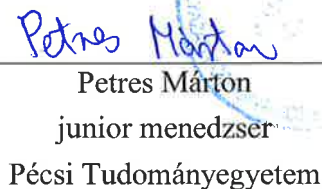 Petres Márton
Petres Márton
junior menedzser
Pécsi Tudományegyetem